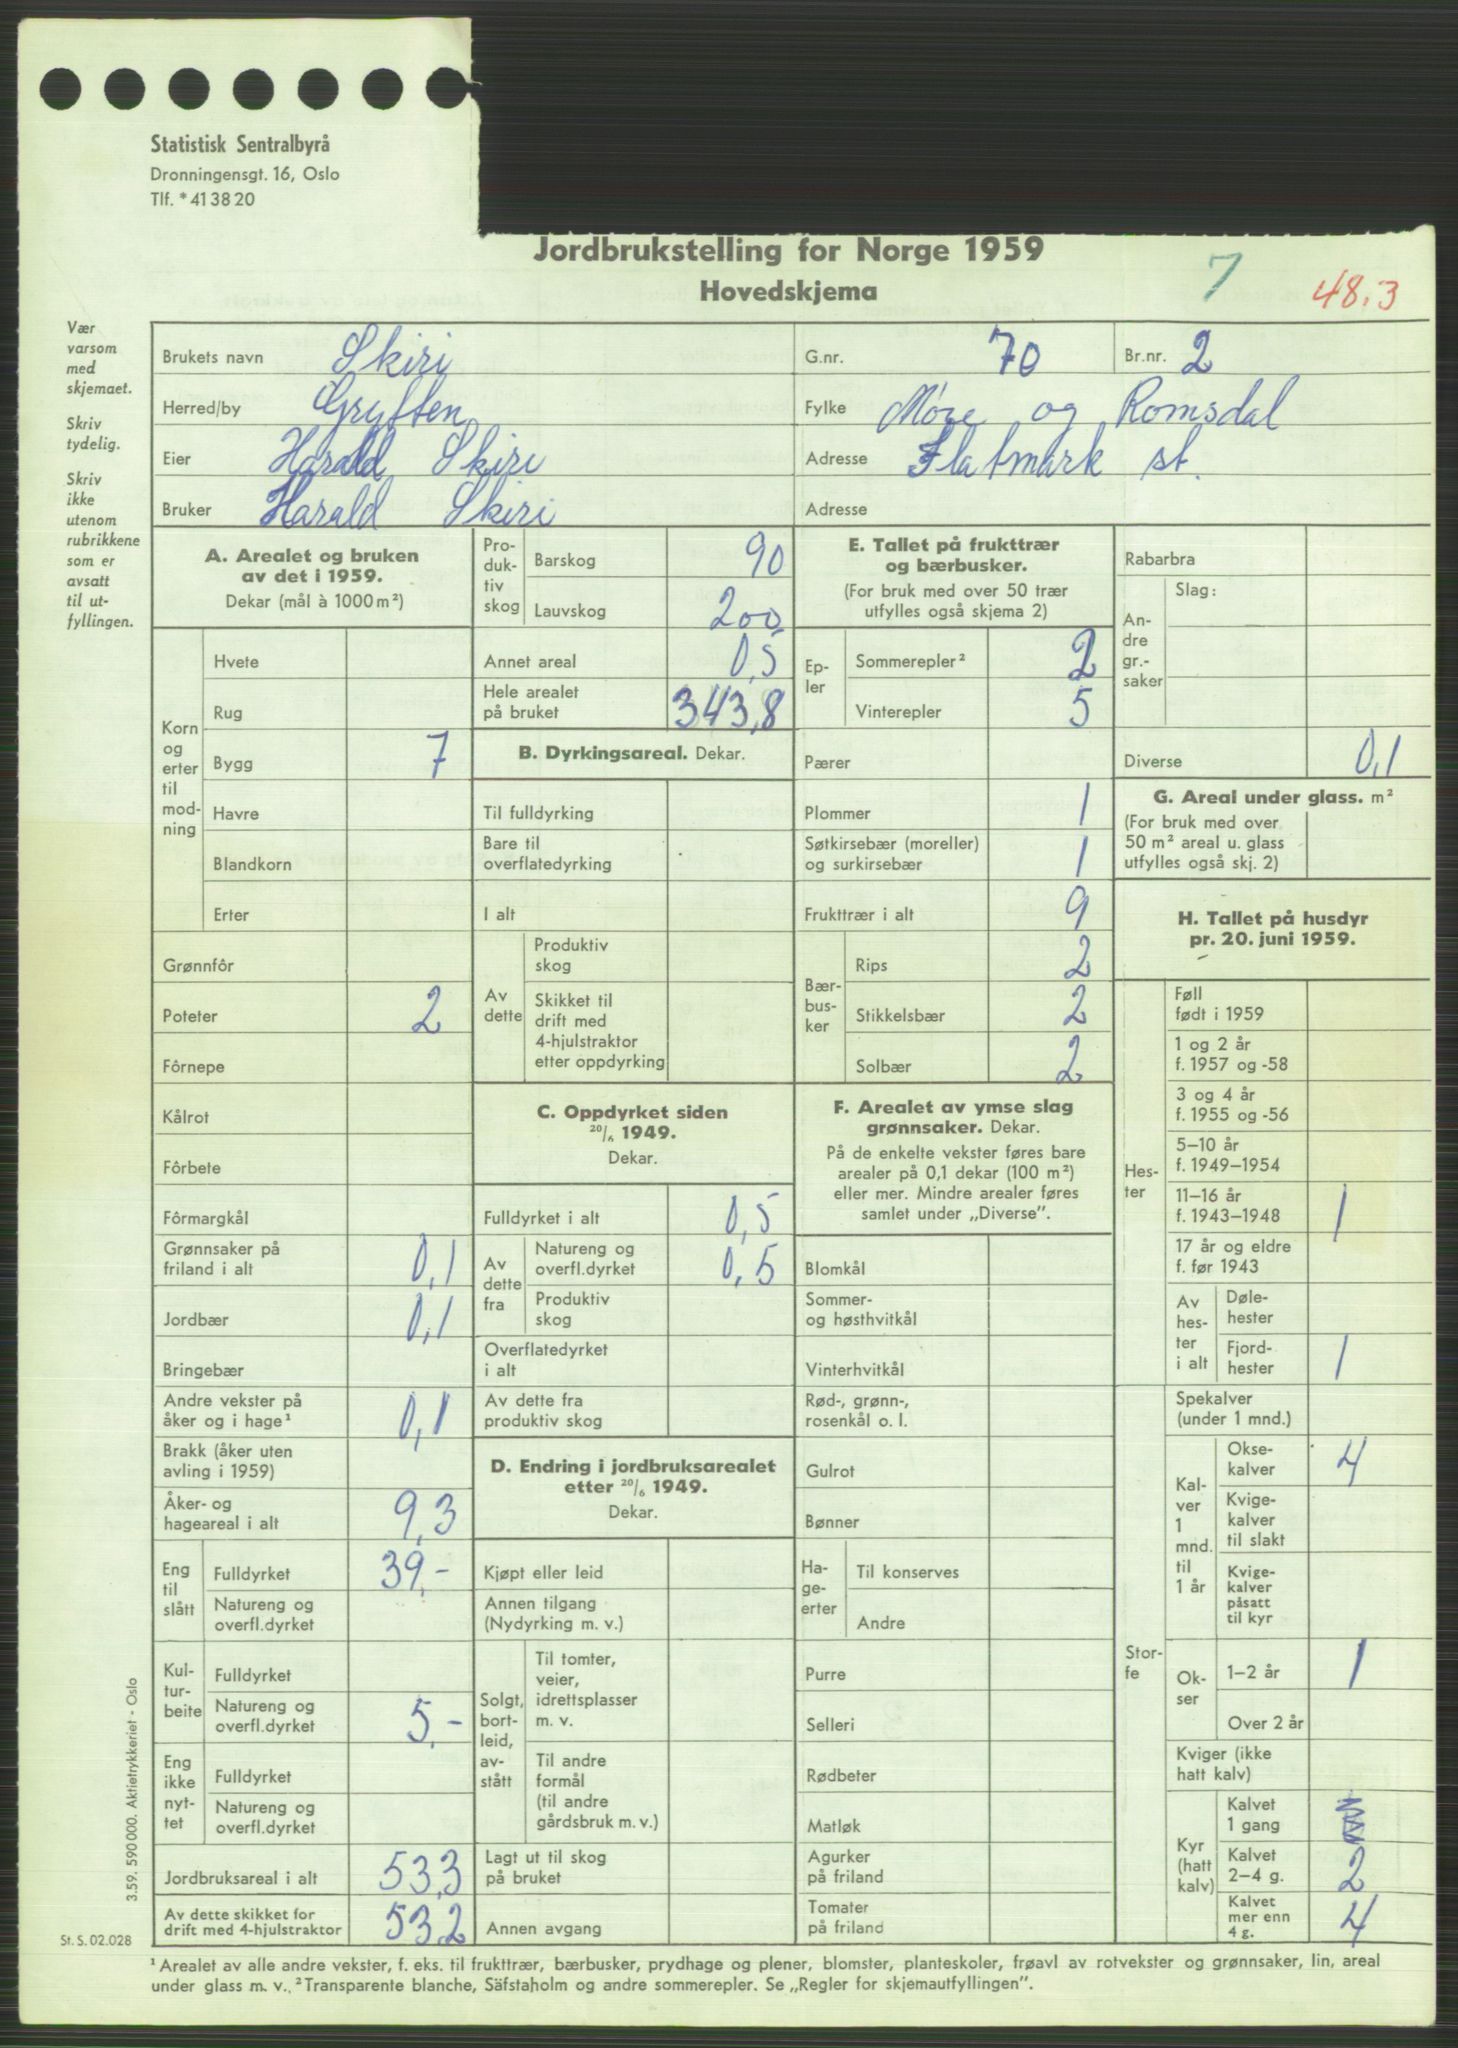 Statistisk Sentralbyrå
Dronningensgt. 16, Oslo
Tlf. * 41 38 20
Jordbrukstelling for Norge 1959
Hovedskjema
7
48.3
Vær
varsom
med
skjemaet.
Skriv
tydelig.
Skriv
ikke
utenom
rubrikkene
som er
avsatt
til ut-
fyllingen.
Brukets navn Skiri G.nr. 70 Br.nr. 2
Herred/by Grytten Fylke Møre og Romsdal
Eier Harald Skiri Adresse Flatmark st.
Bruker Harald Skiri Adresse
A. Arealet og bruken
av det i 1959.
Dekar (mål à 1000 m²)
Korn
og
erter
til
mod-
ning
Hvete
Rug
Bygg 7
Havre
Blandkorn
Erter
Grønnfôr
Poteter 2
Fôrnepe
Kålrot
Fôrbete
Fôrmargkål
Grønnsaker på
friland i alt 0,1
Jordbær 0,1
Bringebær
Andre vekster på
åker og i hage¹ 0,1
Brakk (åker uten
avling i 1959)
Åker- og
hageareal i alt 9,3
Eng
til
slått
Fulldyrket 39,-
Natureng og
overfl.dyrket
Kul-
tur-
beite
Fulldyrket
Natureng og
overfl.dyrket 5,-
Eng
ikke
nyt-
tet
Fulldyrket
Natureng og
overfl.dyrket
Jordbruksareal i alt 53,3
Av dette skikket for
drift med 4-hjulstraktor 53,2
Pro-
duk-
tiv
skog
Barskog 90
Lauvskog 200
Annet areal 0,5
Hele arealet
på bruket 343,8
B. Dyrkingsareal. Dekar.
Til fulldyrking
Bare til
overflatedyrking
I alt
Av
dette
Produktiv
skog
Skikket til
drift med
4-hjulstraktor
etter oppdyrking
C. Oppdyrket siden
20/6 1949.
Dekar.
Fulldyrket i alt 0,5
Av
dette
fra
Natureng og
overfl.dyrket 0,5
Produktiv
skog
Overflatedyrket
i alt
Av dette fra
produktiv skog
D. Endring i jordbruksarealet
etter 20/6 1949.
Dekar.
Kjøpt eller leid
Annen tilgang
(Nydyrking m. v.)
Solgt,
bort-
leid,
av-
stått
Til tomter,
veier,
idrettsplasser
m. v.
Til andre
formål
(til andre
gårdsbruk m. v.)
Lagt ut til skog
på bruket
Annen avgang
E. Tallet på frukttrær
og bærbusker.
(For bruk med over 50 trær
utfylles også skjema 2)
Ep-
ler
Sommerepler² 2
Vinterepler 5
Pærer
Plommer 1
Søtkirsebær (moreller)
og surkirsebær 1
Frukttrær i alt 9
Bær-
bus-
ker
Rips 2
Stikkelsbær 2
Solbær 2
F. Arealet av ymse slag
grønnsaker. Dekar.
På de enkelte vekster føres bare
arealer på 0,1 dekar (100 m²)
eller mer. Mindre arealer føres
samlet under „Diverse”.
Blomkål
Sommer-
og høsthvitkål
Vinterhvitkål
Rød-, grønn-,
rosenkål o. l.
Gulrot
Bønner
Ha-
ge-
erter
Til konserves
Andre
Purre
Selleri
Rødbeter
Matløk
Agurker
på friland
Tomater
på friland
Rabarbra
An-
dre
gr.-
saker
Slag:
Diverse 0,1
G. Areal under glass. m²
(For bruk med over
50 m² areal u. glass
utfylles også skj. 2)
H. Tallet på husdyr
pr. 20. juni 1959.
Hes-
ter
Føll
født i 1959
1 og 2 år
f. 1957 og -58
3 og 4 år
f. 1955 og -56
5–10 år
f. 1949–1954
11–16 år
f. 1943–1948 1
17 år og eldre
f. før 1943
Av
hes-
ter
i alt
Døle-
hester
Fjord-
hester 1
Stor-
fe
Spekalver
(under 1 mnd.)
Kal-
ver
1
mnd.
til
1 år
Okse-
kalver 4
Kvige-
kalver
til slakt
Kvige-
kalver
påsatt
til kyr
Ok-
ser
1–2 år 1
Over 2 år
Kviger (ikke
hatt kalv)
Kyr
(hatt
kalv)
Kalvet
1 gang
Kalvet
2–4 g. 2
Kalvet
mer enn
4 g. 4
3.59. 590 000. Aktietrykkeriet - Oslo
St. S. 02.028
¹ Arealet av alle andre vekster, f. eks. til frukttrær, bærbusker, prydhage og plener, blomster, planteskoler, frøavl av rotvekster og grønnsaker, lin, areal
under glass m. v. ² Transparente blanche, Säfstaholm og andre sommerepler. Se „Regler for skjemautfyllingen”.